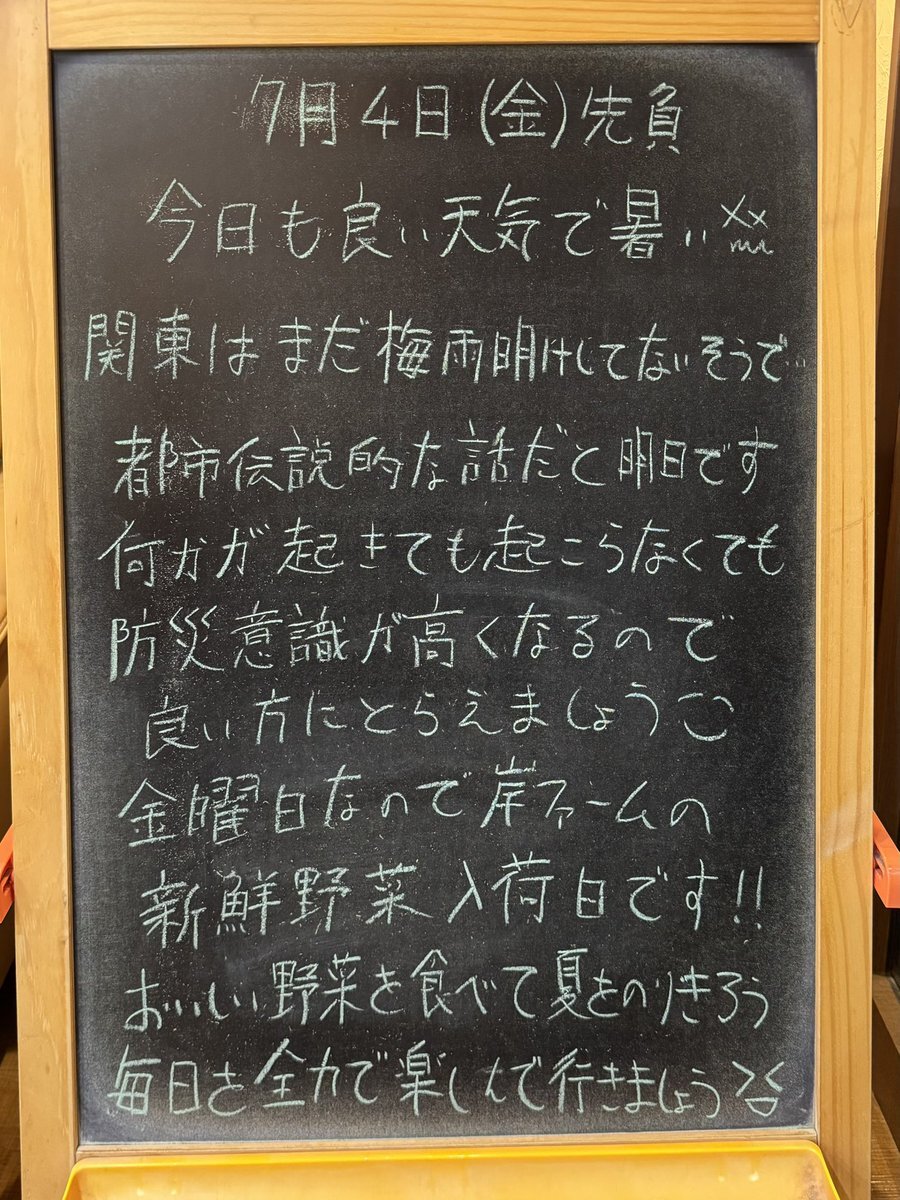 7月4日(金)先負
今日も良い天気で暑い
関東はまだ梅雨明けしてないそうで…
都市伝説的な話だと明日です
何かが起きても起こらなくても
防災意識が高くなるので
良い方にとらえましょう
金曜日なので岸ファームの
新鮮野菜入荷日です!!
おいしい野菜を食べて夏をのりきろう
毎日を全力で楽しんで行きましょう